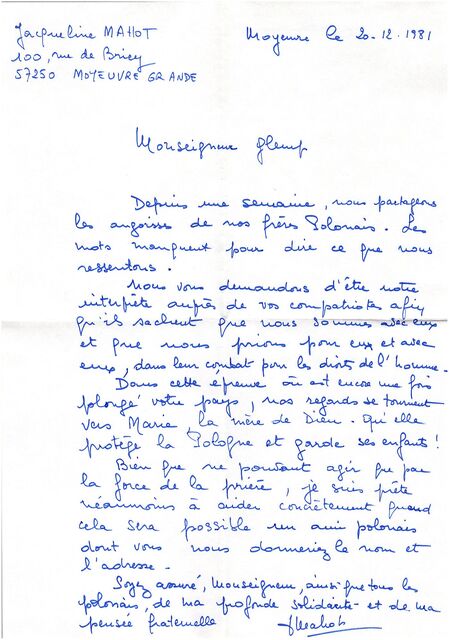 Jacqueline MAHOT
100, rue de Briey
57250 MOYEUVRE GRANDE
Moyeuvre le 20-12-1981
Monseigneur Glemp
Depuis une semaine, nous partageons
les angoisses de nos frères Polonais. Les
mots manquent pour dire ce que nous
ressentons.
Nous vous demandons d'être notre
interprète auprès de vos compatriotes afin
qu'ils sachent que nous sommes avec eux
et que nous prions pour eux et avec
eux, dans leur combat pour les droits de l'homme.
Dans cette épreuve où est encore une fois
plongé votre pays, nos regards se tournent
vers Marie, la mère de Dieu. Qu'elle
protège la Pologne et garde ses enfants!
Bien que ne pouvant agir que par
la force de la prière, je suis prête
néanmoins à aider concrètement quand
cela sera possible un ami polonais
dont vous nous donneriez le nom et
l'adresse.
Soyez assuré, Monseigneur, ainsi que tous les
polonais, de ma profonde solidarité et de ma
pensée fraternelle
JMahot